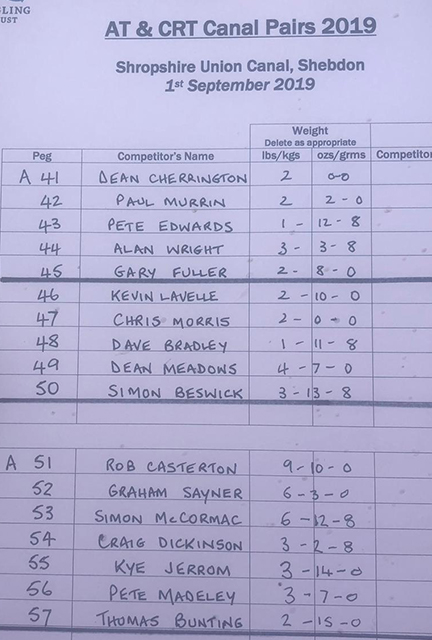 LING
UST
AT & CRT Canal Pairs 2019
Shropshire Union Canal, Shebdon
1st September 2019
Weight
Delete as appropriate
Peg Competitor's Name lbs/kgs ozs/grms Competitor
A 41 DEAN CHERRINGTON 2 0-0
42 PAUL MURRIN 2 2-0
43 PETE EDWARDS 1 - 12 - 8
44 ALAN WRIGHT 3 - 3 - 8
45 GARY FULLER 2 - 8 - 0
46 KEVIN LAVELLE 2 - 10 - 0
47 CHRIS MORRIS 2 - 0 - 0
48 DAVE BRADLEY 1 - 11 - 8
49 DEAN MEADOWS 4 - 7 - 0
50 SIMON BESWICK 3 - 13 - 8
A 51 ROB CASTERTON 9 - 10 - 0
52 GRAHAM SAYNER 6 - 3 - 0
53 SIMON McCORMAC 6 - 12 - 8
54 CRAIG DICKINSON 3 - 2 - 8
55 KYE JERROM 3 - 14 - 0
56 PETE MADELEY 3 - 7 - 0
57 THOMAS BUNTING 2 - 15 - 0